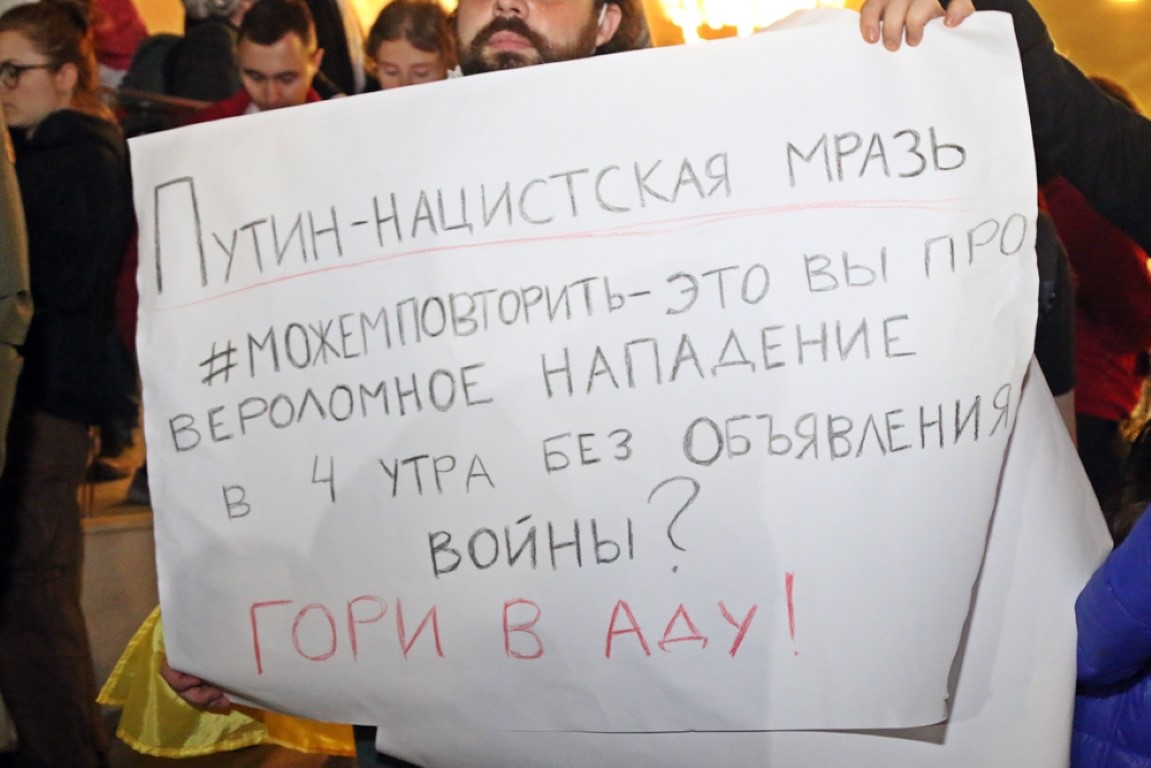 ПУТИН-НАЦИСТСКАЯ МРАЗЬ
#МОЖЕМПОВТОРИТЬ-ЭТО ВЫ ПРО
ВЕРОЛОМНОЕ НАПАДЕНИЕ
В 4 УТРА БЕЗ ОБЪЯВЛЕНИЯ
ВОЙНЫ?
ГОРИ В АДУ!